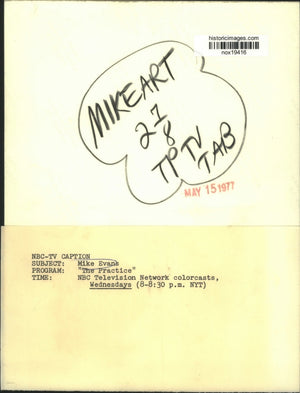 historicimages.com
nox19416
MIKEART
27
8
TP TV
TAB
MAY 15 1977
NBC-TV CAPTION
SUBJECT: Mike Evans
PROGRAM: "The Practice"
TIME: NBC Television Network colorcasts,
Wednesdays (8-8:30 p.m. NYT)